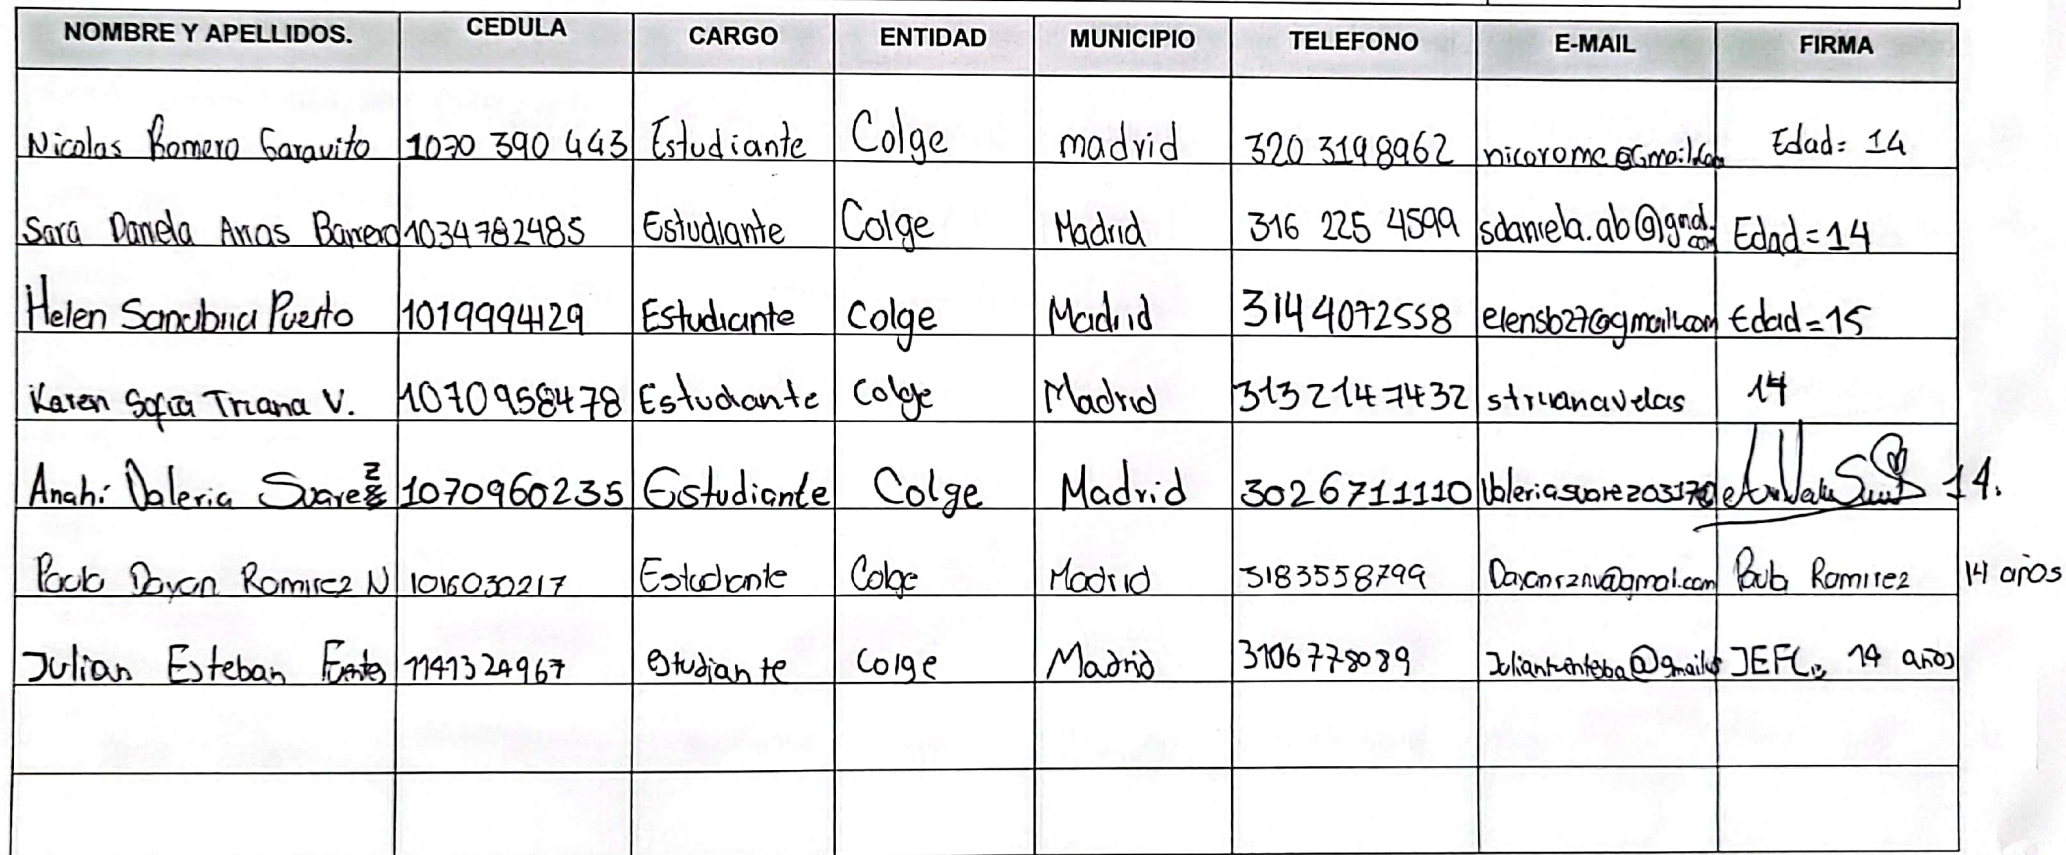 NOMBRE Y APELLIDOS. CEDULA CARGO ENTIDAD MUNICIPIO TELEFONO E-MAIL FIRMA
Nicolas Romero Garavito 1070 390 443 Estudiante Colge madrid 320 3198962 Edad= 14
Sara Daniela Arias Barrero 1034782485 Estudiante Colge Madrid 316 225 4599 Edad=14
Helen Sanabria Puerto 1019994129 Estudiante Colge Madrid 3144072558 elensb27@gmail.com Edad=15
Karen Sofia Triana V. 1070958478 Estudiante Colge Madrid 3132147432 strianavelas 14
Anahi Valeria Suarez 1070960235 Estudiante Colge Madrid 3026711110 14.
Dayan Ramirez N 1016030217 Estudiante Colge Madrid 3183558799 Ramirez 14 años
Julian Esteban 1141324967 estudiante Colge Madrid 3106778089 14 años